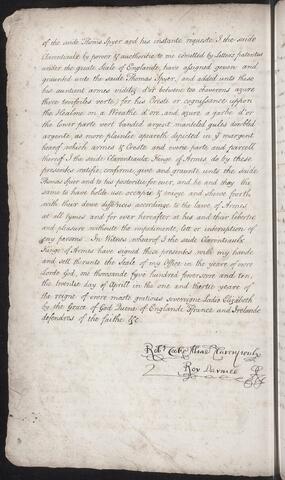 of the saide Thomas Spyer and his instante requeste I the saide
Clarentiaulx by power & authoritie to me comitted by Letters patentes
under the greate Seale of Englande, have assigned geven and
graunted unto the saide Thomas Spyer, and added unto these
his auntient armes
three trefoiles verte) for his Creste or cognissance uppon
the Healme on a Wreathe d'or and azure a partie d'or
the lower parte vert banded argent manteled gules doubled
argente, as more plainlie apeareth depicted in ye margent
hereof which armes & Creste and every parte and parcell
thereof I the saide Clarentiaulx Kinge of Armes do by these
presentes ratifie, conforme, give and graunte unto the saide
Thomas Spier and to his posteritie for ever, and he and they the
same to have holde use occupie & enioye and shewe forth
with their dewe differences accordinge to the lawe of Armes
at all tymes and for ever hereafter at his and their libertie
and pleasure without the impediment, lett or interuption of
any persons. In Witnes whearof I the saide Clarentiaulx
Kinge of Armes have signed these presentes with my hande
and sett therunto the Seale of my Office in the yeare of owre
Lorde God, one thousande fyve hundred fowerscore and ten,
the twelfte day of Aprill in the one and thirtie yeare of
the reigne of owre moste gratious soveraigne Ladie Elizabeth
by the Grace of God Queene of Englande Ffrance and Irelande
defendres of the faithe &c
Robt Cooke Clarentieulx
Roy Darmes